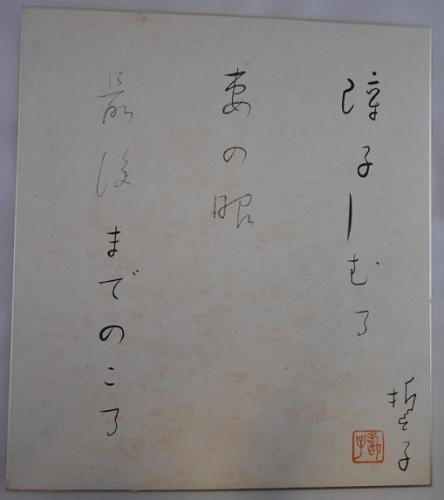 障子しむる
妻の眼
最後までのこる
誓子